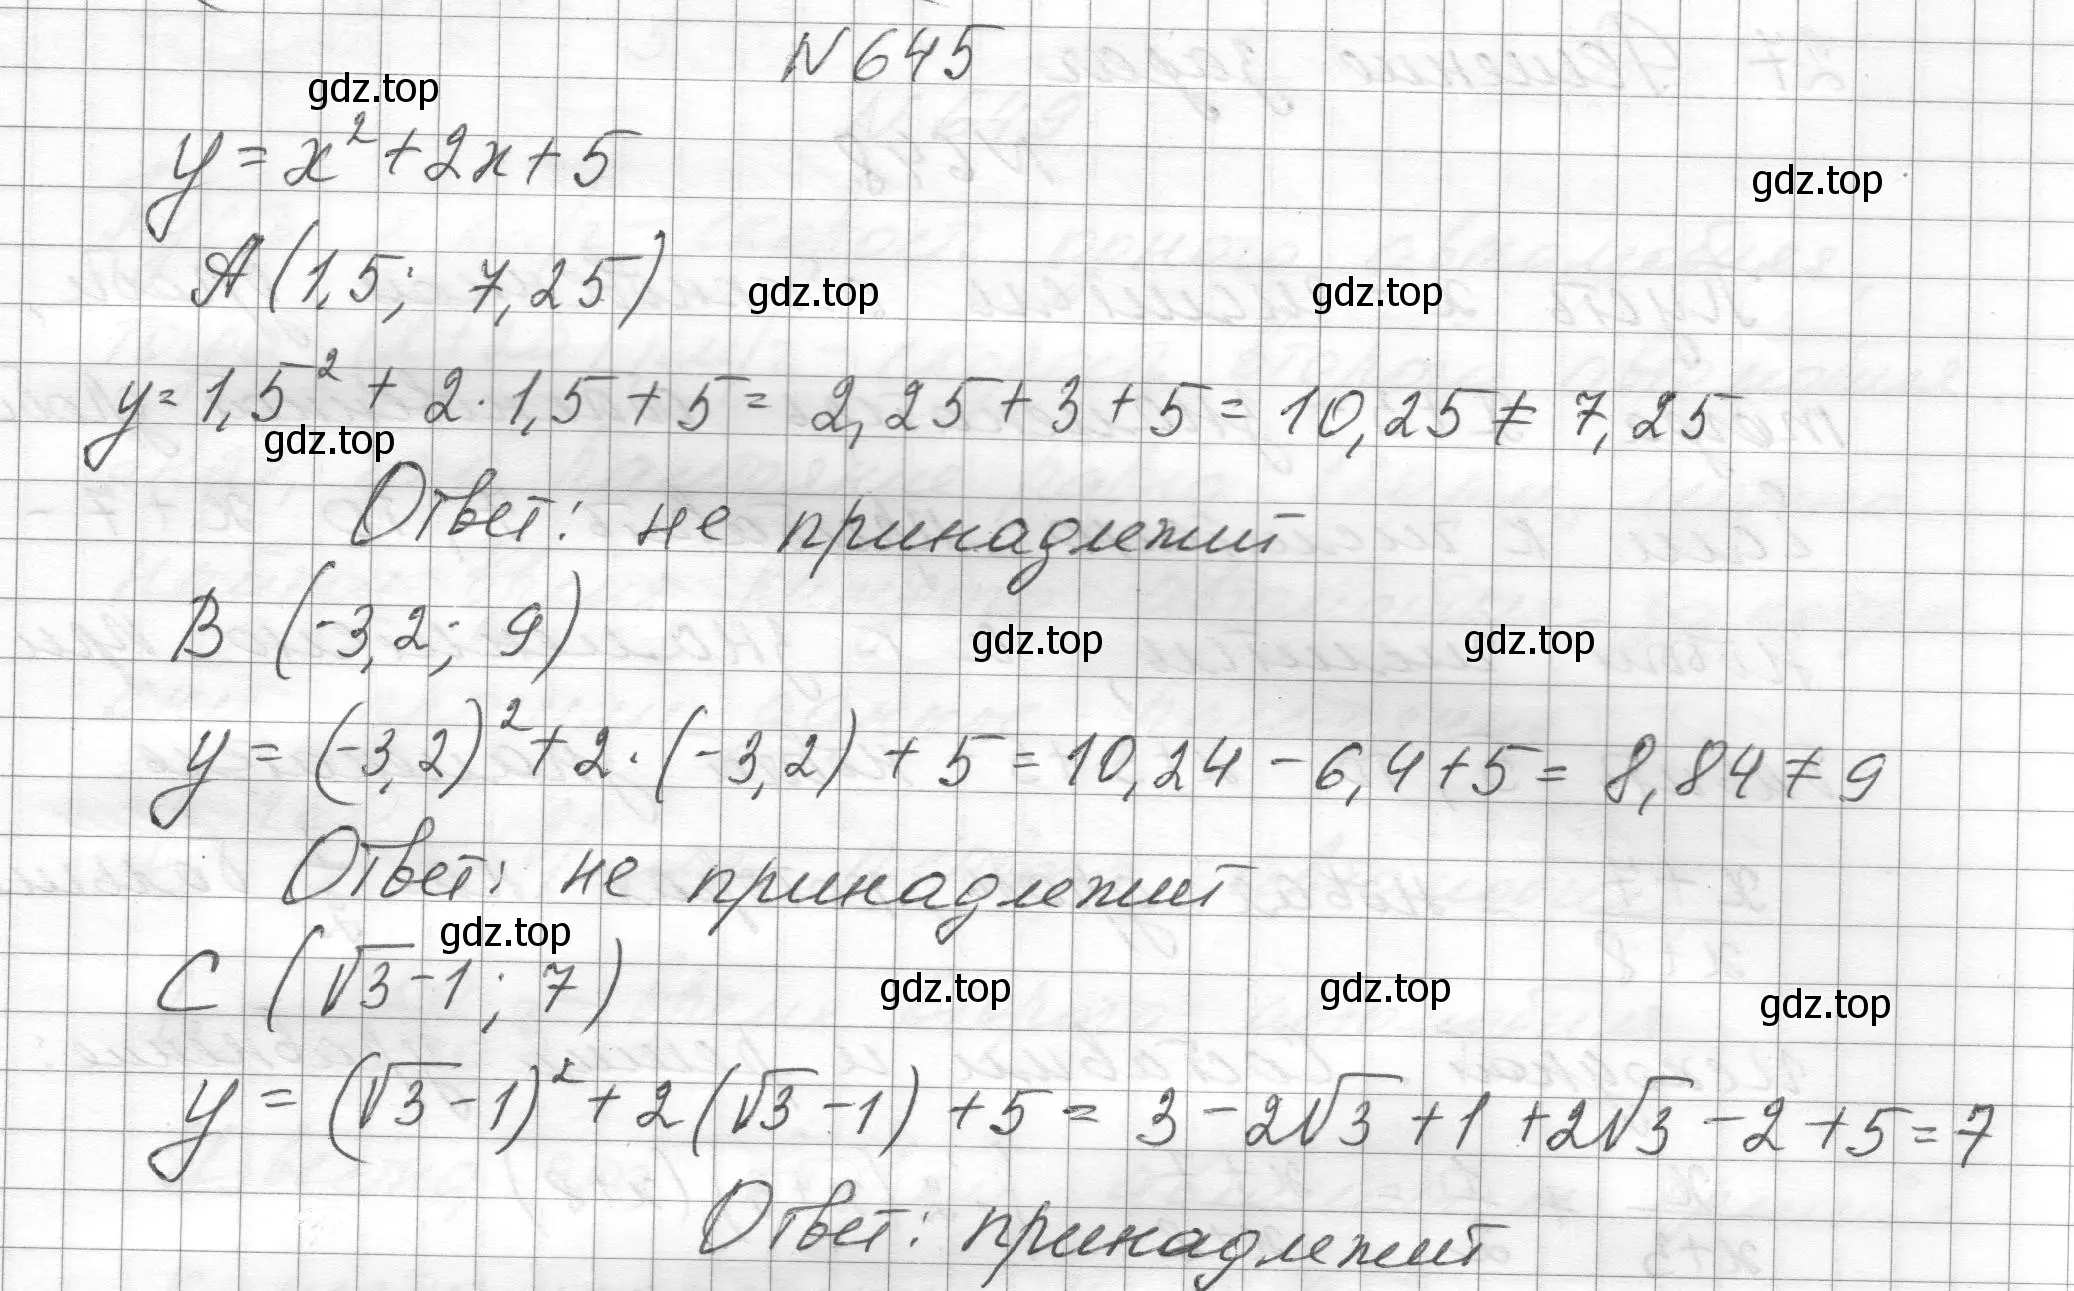 N 645
gdz.top
y = x² + 2x + 5
gdz.top
A (1,5; 7,25)
gdz.top gdz.top
y = 1,5² + 2 · 1,5 + 5 = 2,25 + 3 + 5 = 10,25 ≠ 7,25
gdz.top
Ответ: не принадлежит
B (-3,2; 9)
gdz.top gdz.top
y = (-3,2)² + 2 · (-3,2) + 5 = 10,24 - 6,4 + 5 = 8,84 ≠ 9
Ответ: не принадлежит
gdz.top
C (√3 - 1; 7)
gdz.top gdz.top gdz.top
y = (√3 - 1)² + 2(√3 - 1) + 5 = 3 - 2√3 + 1 + 2√3 - 2 + 5 = 7
Ответ: принадлежит